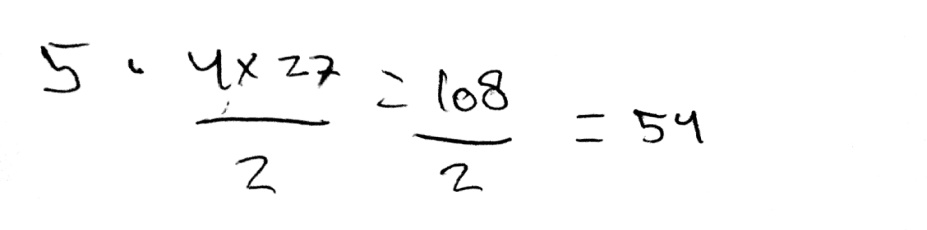 5 . 4x27/2 = 108/2 = 54